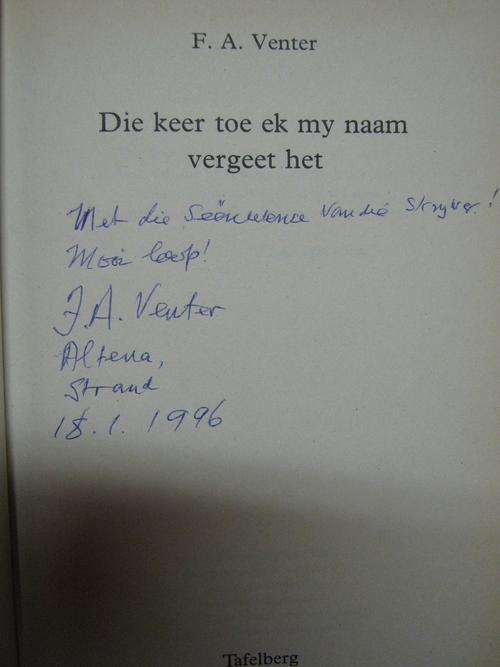 F. A. Venter
Die keer toe ek my naam
vergeet het
Met die Seënwense van die Skrywer!
Mooi loop!
F. A. Venter
Altena,
Strand
18. 1. 1996
Tafelberg